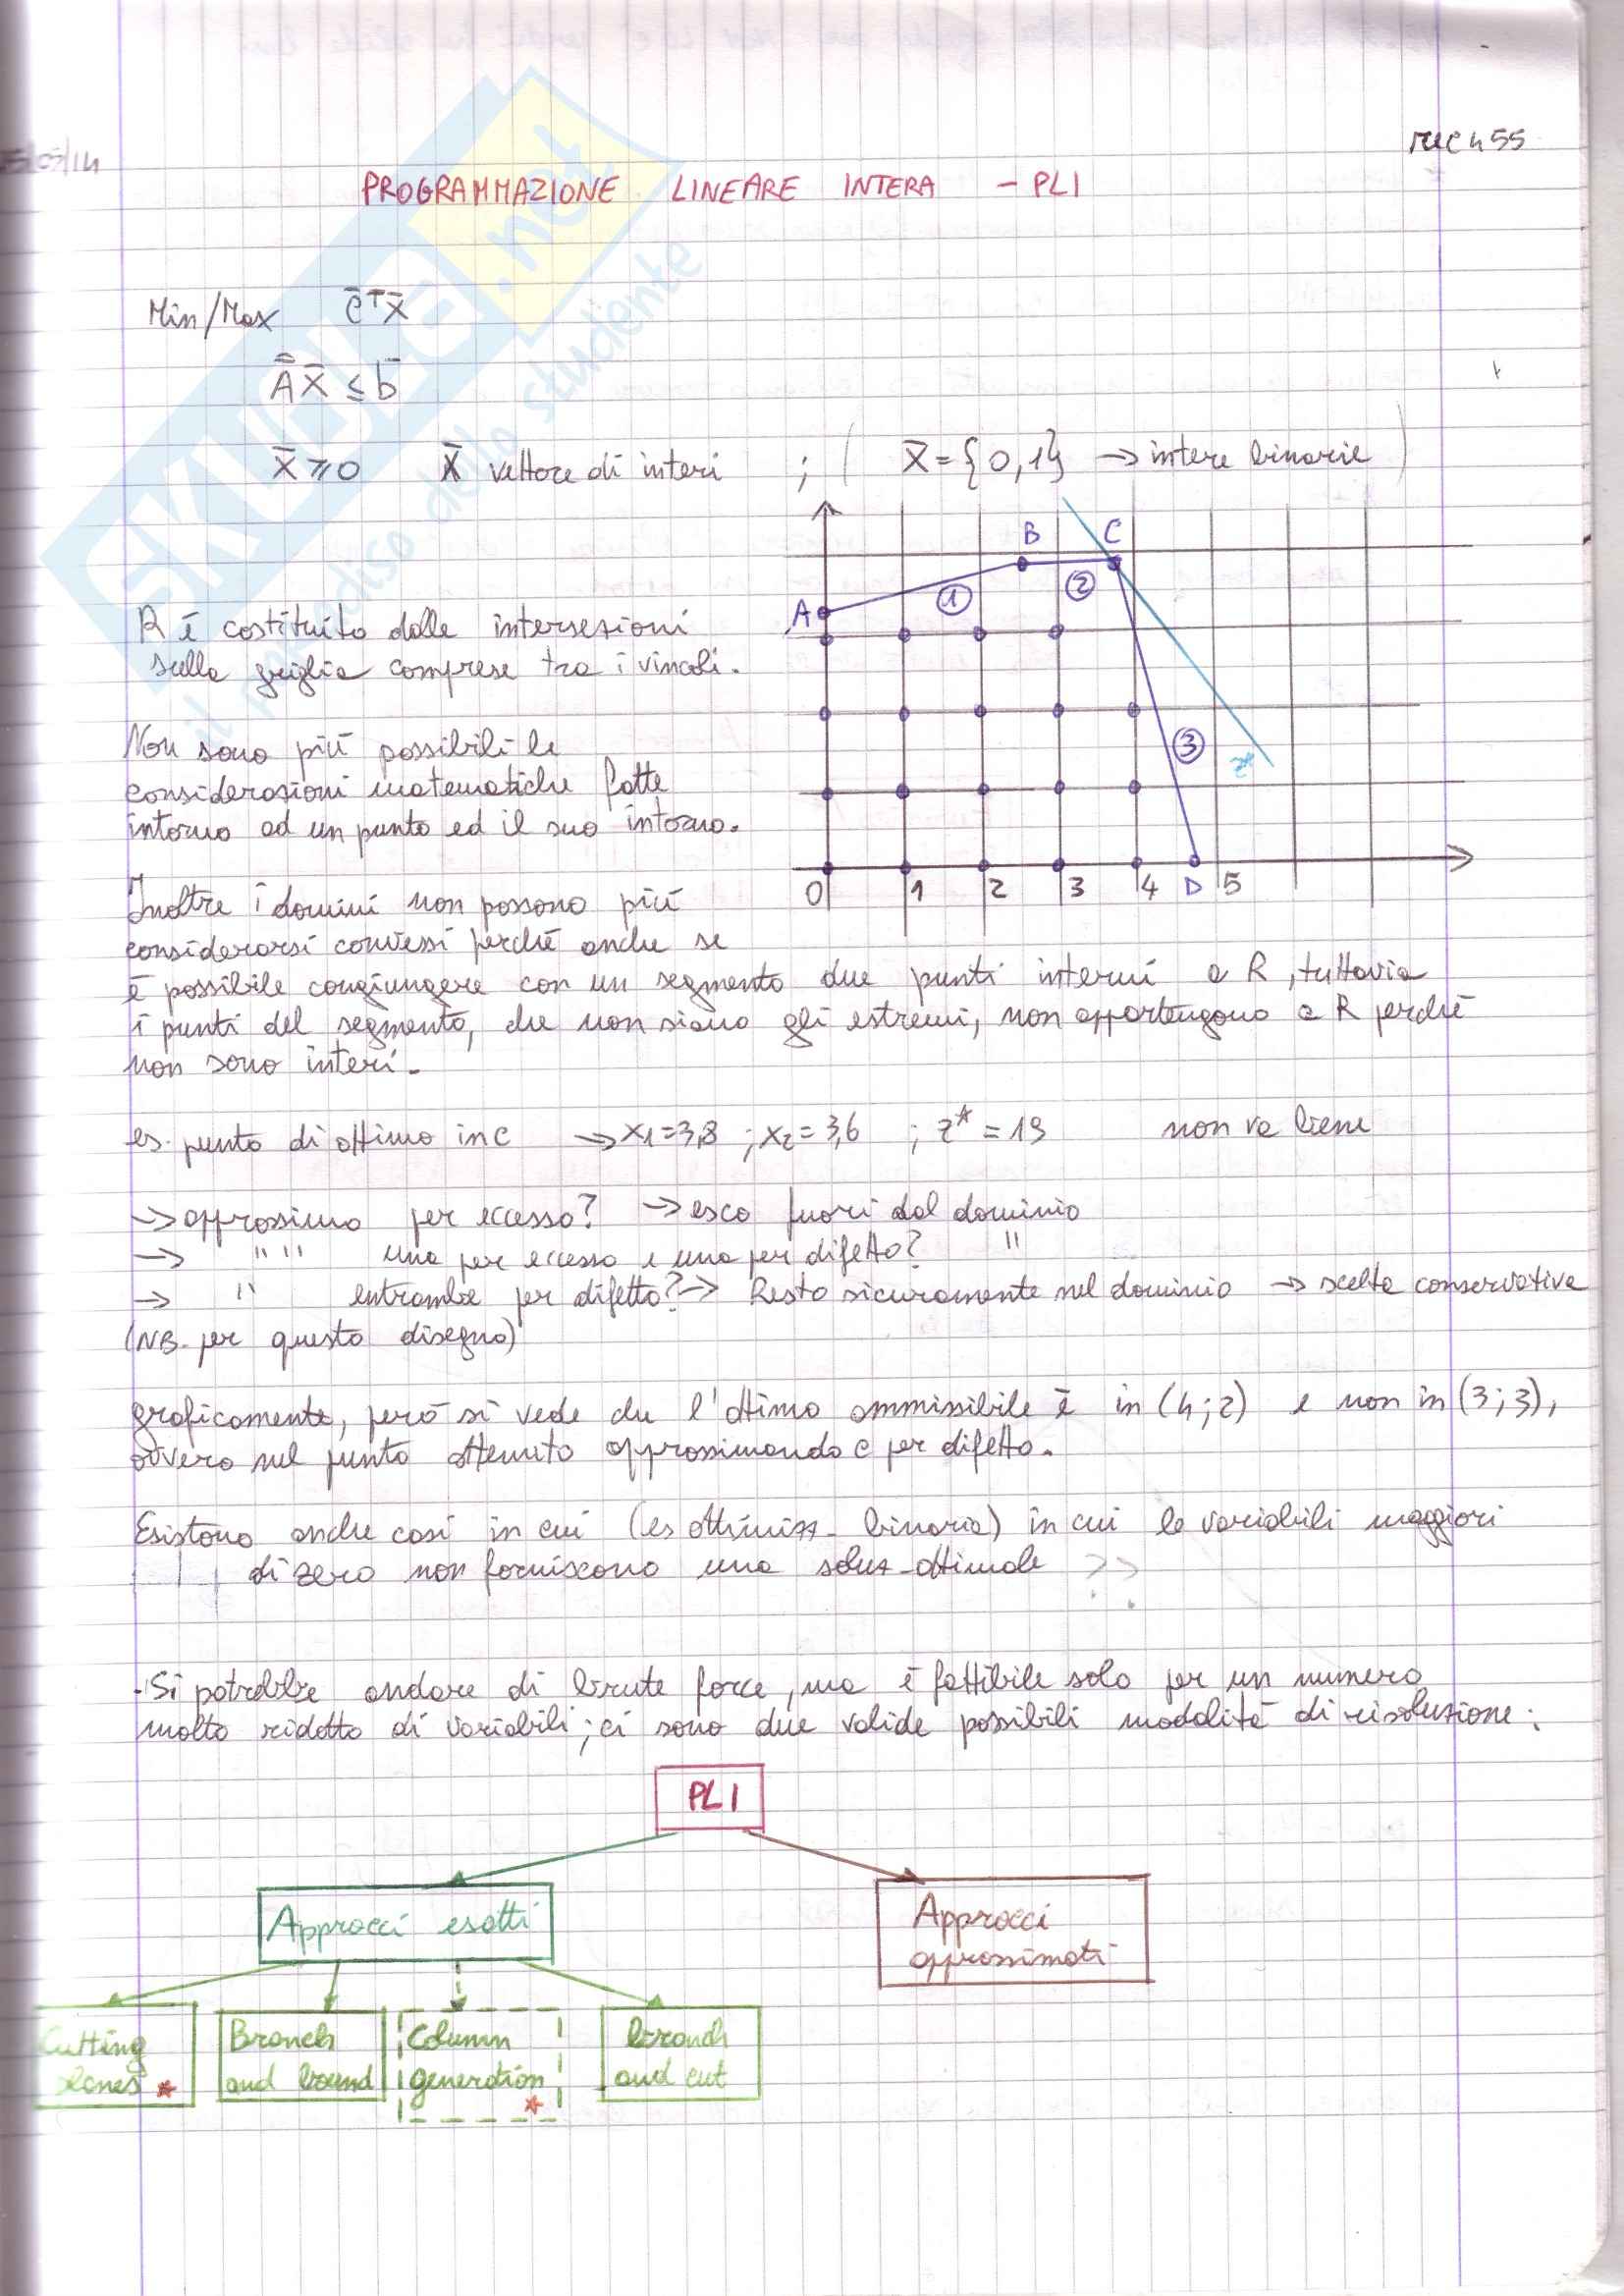 PROGRAMMAZIONE LINEARE INTERA - PLI
Min/Max c̄ᵀx̄
Ā x̄ ≤ b̄
x̄ ≥ 0 x̄ vettore di interi ; ( x̄ = {0,1} → intere binarie )
R é costituito dalle intersezioni
sulla griglia comprese tra i vincoli.
Non sono più possibili le
considerazioni matematiche fatte
intorno ad un punto ed il suo intorno.
B C
A
1 2
3
z*
0 1 2 3 4 D 5
Inoltre i domini non possono più
considerarsi convessi perché anche se
è possibile congiungere con un segmento due punti interni a R, tuttavia
i punti del segmento, che non siano gli estremi, non appartengono a R perché
non sono interi.
es. punto di ottimo in C → x1=3,8 ; x2=3,6 ; z*=19 non va bene
→ approssimo per eccesso? → esco fuori dal dominio
→ " " una per eccesso e una per difetto? "
→ " entrambe per difetto? → Resto sicuramente nel dominio → scelta conservativa
(NB. per questo disegno)
graficamente, però si vede che l'ottimo ammissibile è in (4;2) e non in (3;3),
ovvero nel punto ottenuto approssimando C per difetto.
Esistono anche casi in cui (es ottimizz. binaria) in cui le variabili maggiori
di zero non forniscono una soluz. ottimale ??
Si potrebbe andare di brute force, ma è fattibile solo per un numero
molto ridotto di variabili; ci sono due valide possibili modalità di risoluzione:
PLI
Approcci esatti
Approcci
approssimati
Cutting
planes *
Branch
and bound
Column
generation *
branch
and cut
SKUOLA.net
il paradiso dello studente